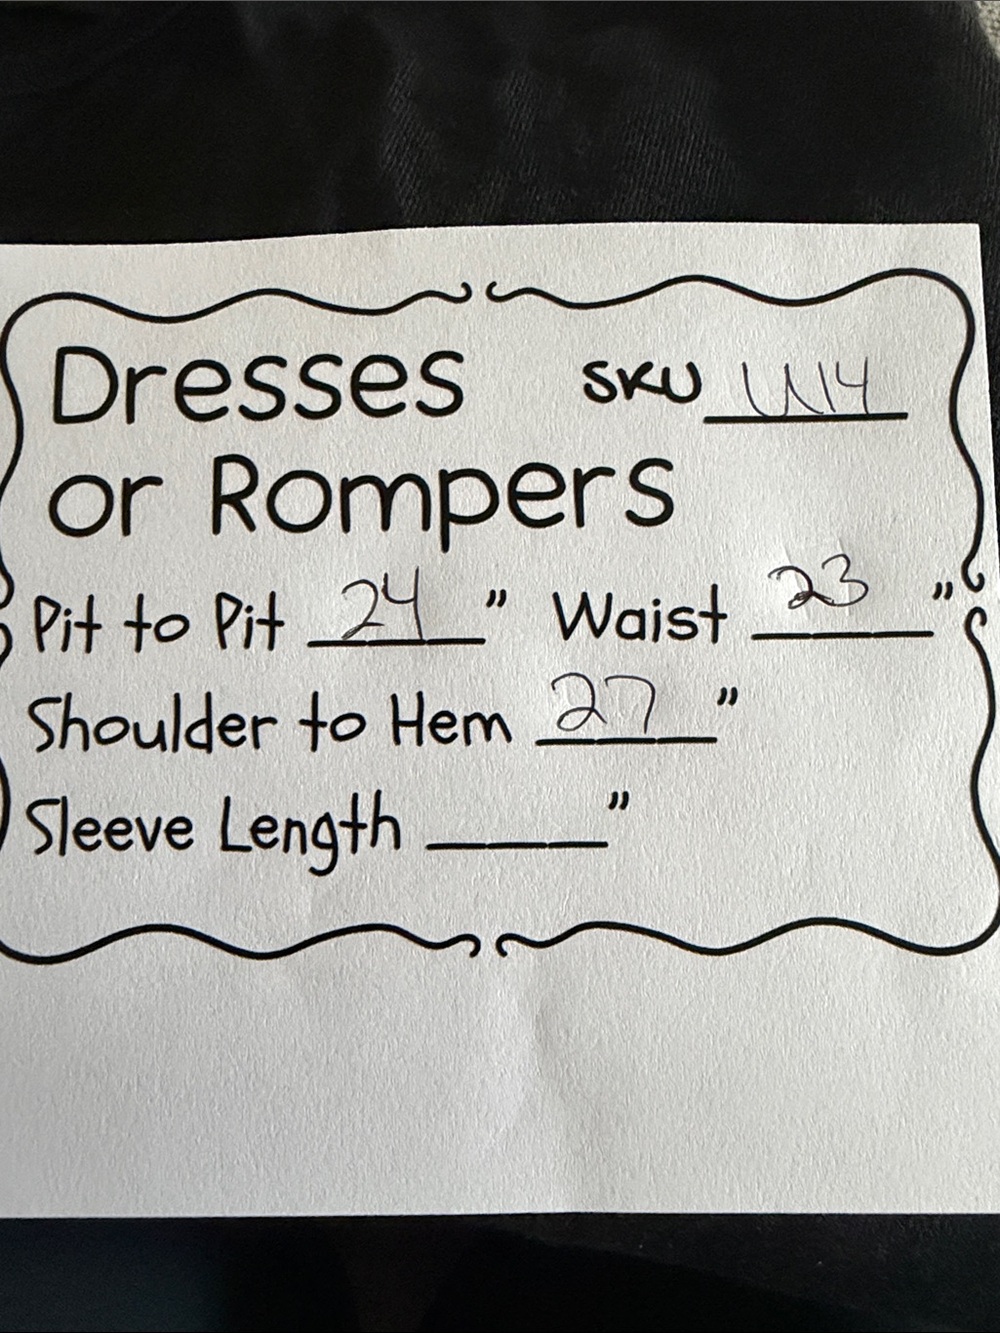 Dresses SKU
or Rompers
Pit to Pit 24" Waist 23"
Shoulder to Hem 27"
Sleeve Length ____"